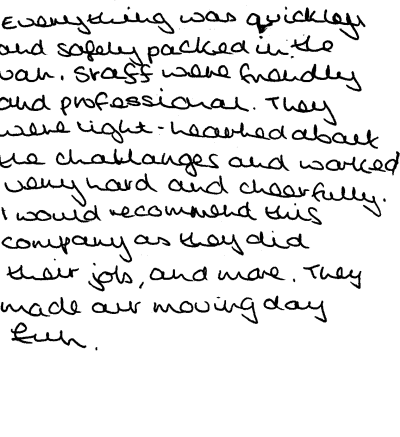 Everything was quickly
and safely packed in the
van. Staff were friendly
and professional. They
were light-hearted about
the challanges and worked
very hard and cheerfully.
I would recommend this
company as they did
their job, and more. They
made our moving day
fun.